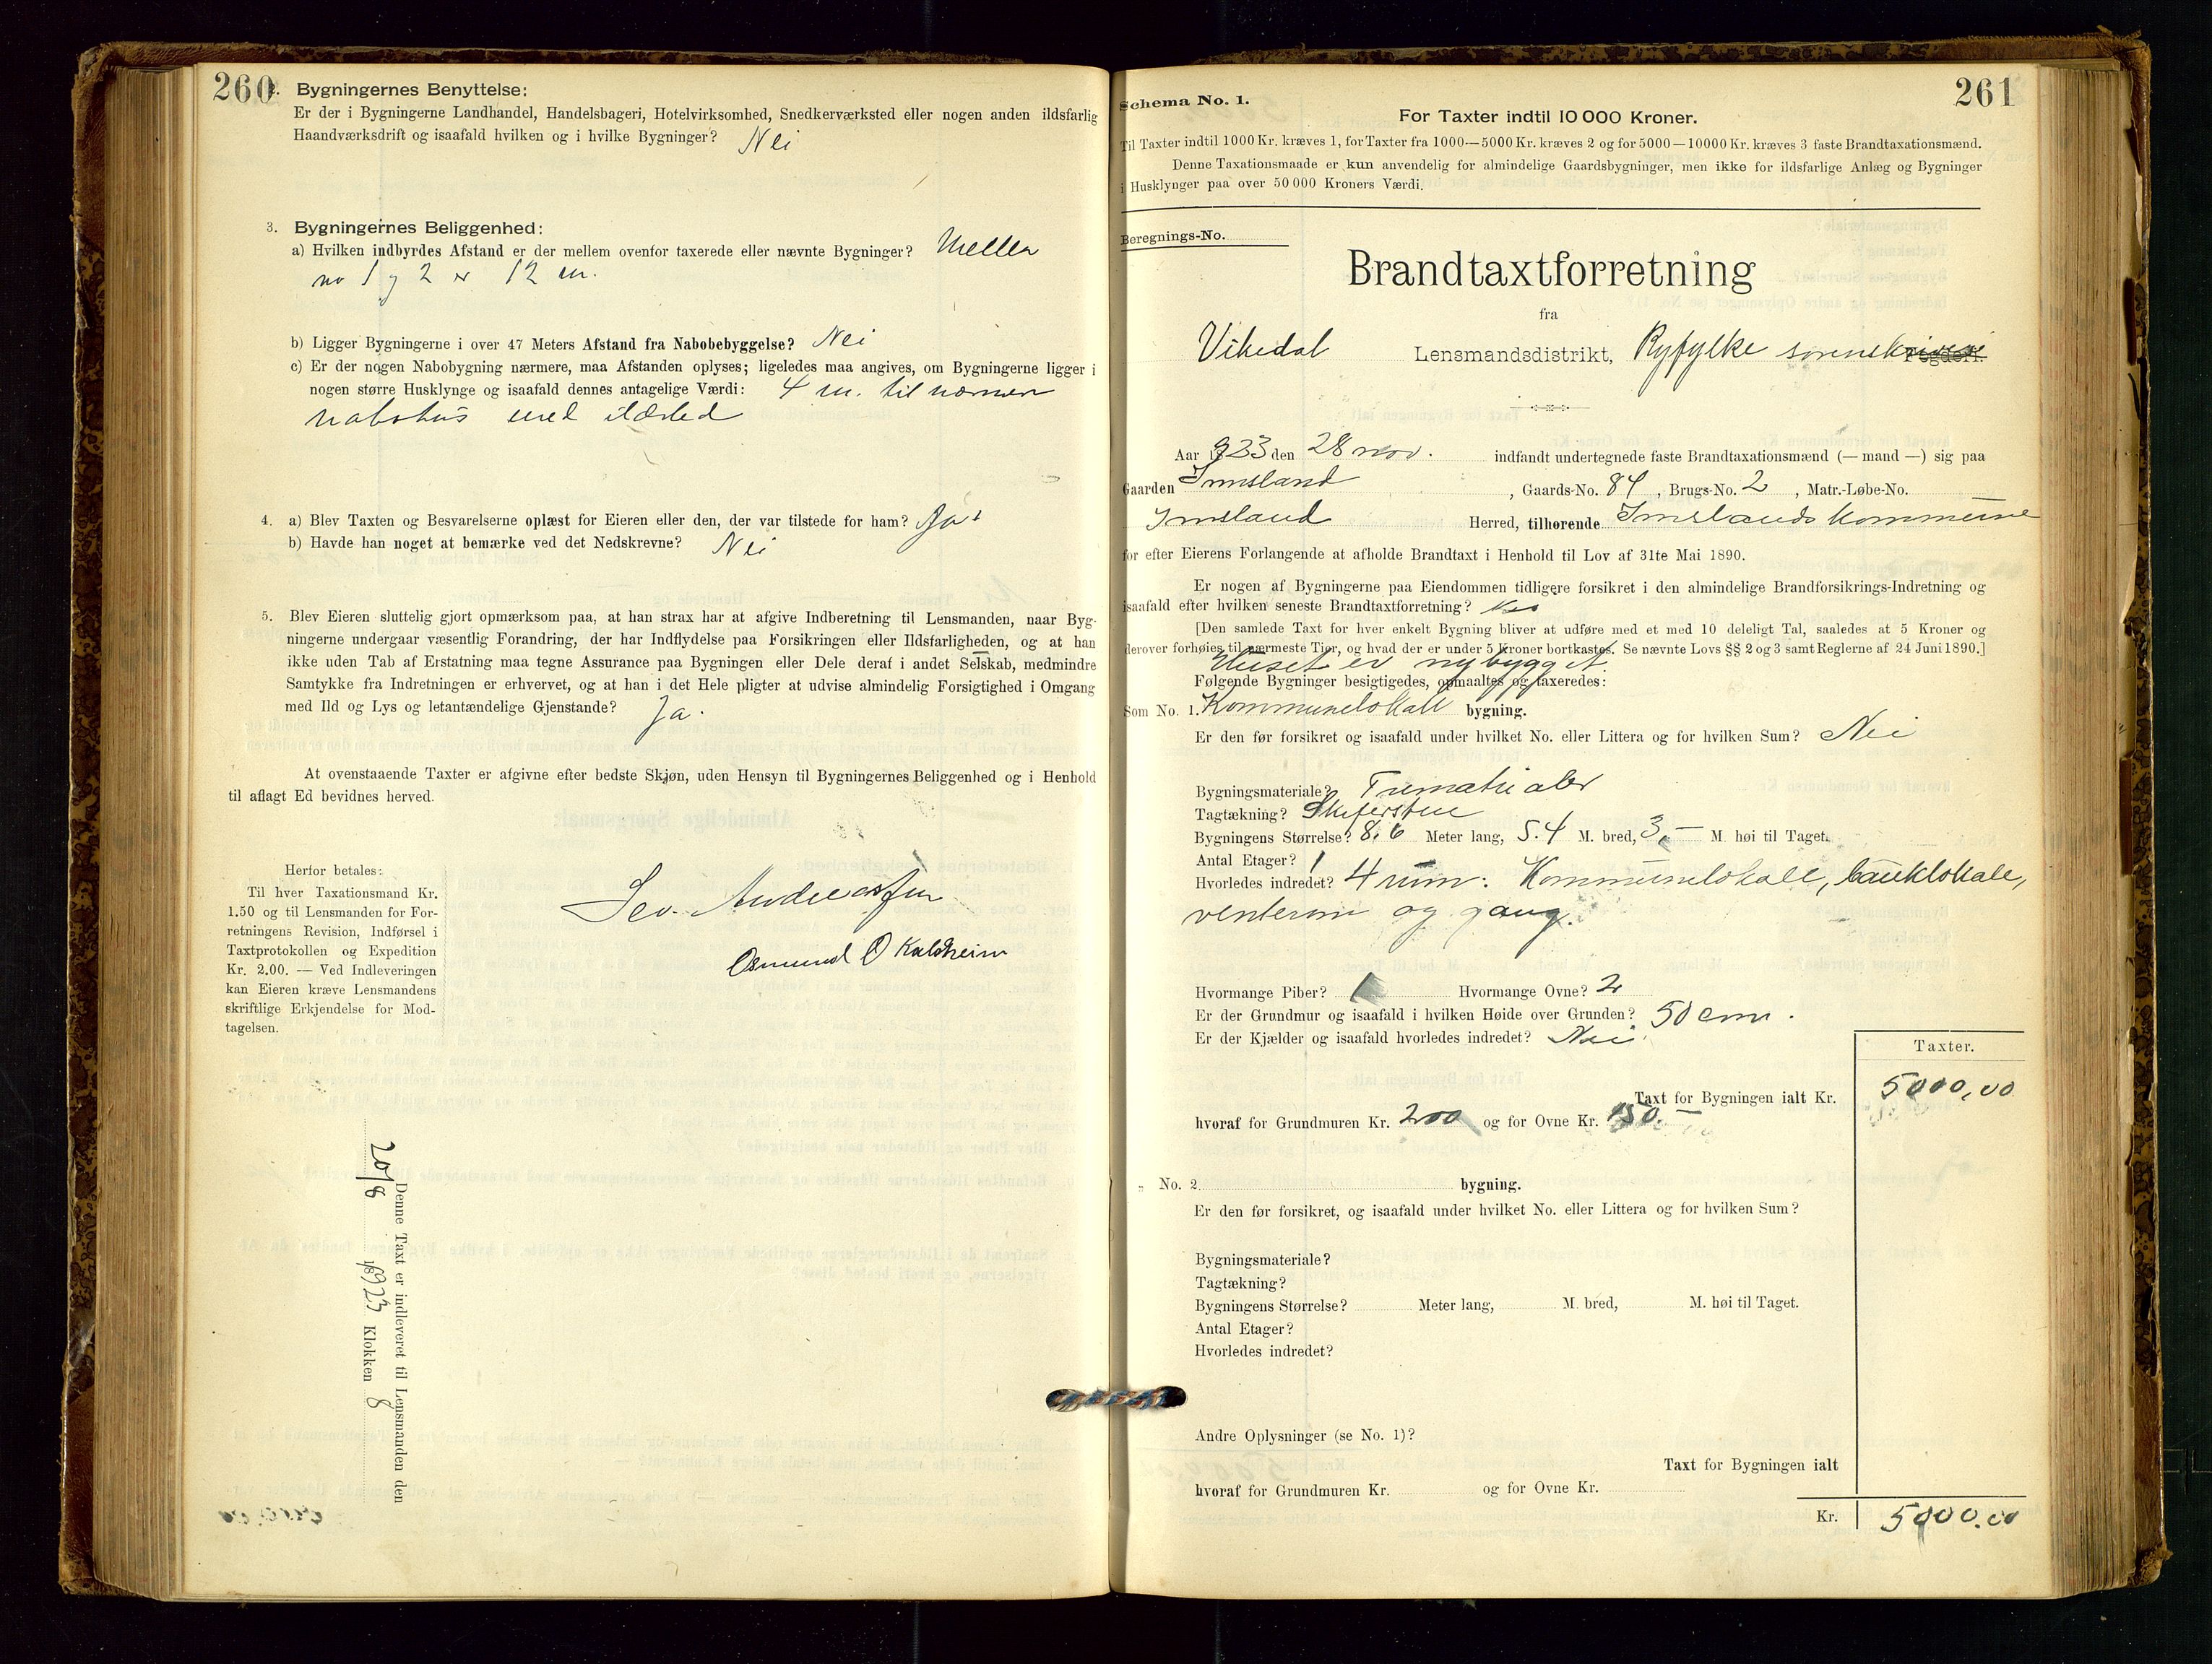 260
2. Bygningernes Benyttelse:
Er der i Bygningerne Landhandel, Handelsbageri, Hotelvirksomhed, Snedkerværksted eller nogen anden ildsfarlig
Haandværksdrift og isaafald hvilken og i hvilke Bygninger? Nei
3. Bygningernes Beliggenhed:
a) Hvilken indbyrdes Afstand er der mellem ovenfor taxerede eller nævnte Bygninger? Mellem
no 1 og 2 er 12 m.
b) Ligger Bygningerne i over 47 Meters Afstand fra Nabobebyggelse? Nei
c) Er der nogen Nabobygning nærmere, maa Afstanden oplyses; ligeledes maa angives, om Bygningerne ligger i
nogen større Husklynge og isaafald dennes antagelige Værdi: 4 m. til nærmeste
nabohus med ildsted
4. a) Blev Taxten og Besvarelserne oplæst for Eieren eller den, der var tilstede for ham? Ja
b) Havde han noget at bemærke ved det Nedskrevne? Nei
5. Blev Eieren sluttelig gjort opmærksom paa, at han strax har at afgive Indberetning til Lensmanden, naar Byg-
ningerne undergaar væsentlig Forandring, der har Indflydelse paa Forsikringen eller Ildsfarligheden, og at han
ikke uden Tab af Erstatning maa tegne Assurance paa Bygningen eller Dele deraf i andet Selskab, medmindre
Samtykke fra Indretningen er erhvervet, og at han i det Hele pligter at udvise almindelig Forsigtighed i Omgang
med Ild og Lys og letantændelige Gjenstande? Ja.
At ovenstaaende Taxter er afgivne efter bedste Skjøn, uden Hensyn til Bygningernes Beliggenhed og i Henhold
til aflagt Ed bevidnes herved.
Herfor betales:
Til hver Taxationsmand Kr.
1.50 og til Lensmanden for For-
retningens Revision, Indførsel i
Taxtprotokollen og Expedition
Kr. 2.00. — Ved Indleveringen
kan Eieren kræve Lensmandens
skriftlige Erkjendelse for Mod-
tagelsen.
Sev. Andreassen
Osmund O Kaldheim
Denne Taxt er indleveret til Lensmanden den
20/8 1923 Klokken 8
261
Schema No. 1.
For Taxter indtil 10 000 Kroner.
Til Taxter indtil 1000 Kr. kræves 1, for Taxter fra 1000—5000 Kr. kræves 2 og for 5000—10000 Kr. kræves 3 faste Brandtaxationsmænd.
Denne Taxationsmaade er kun anvendelig for almindelige Gaardsbygninger, men ikke for ildsfarlige Anlæg og Bygninger
i Husklynger paa over 50 000 Kroners Værdi.
Beregnings-No.
Brandtaxtforretning
fra
Vikedal Lensmandsdistrikt, Ryfylke sorenskriveri Fogderi.
Aar 1923 den 28 nov. indfandt undertegnede faste Brandtaxationsmænd (— mand —) sig paa
Gaarden Imsland, Gaards-No. 84, Brugs-No. 2, Matr.-Løbe-No.
Imsland Herred, tilhørende Imslands kommune
for efter Eierens Forlangende at afholde Brandtaxt i Henhold til Lov af 31te Mai 1890.
Er nogen af Bygningerne paa Eiendommen tidligere forsikret i den almindelige Brandforsikrings-Indretning og
isaafald efter hvilken seneste Brandtaxtforretning?
[Den samlede Taxt for hver enkelt Bygning bliver at udføre med et med 10 deleligt Tal, saaledes at 5 Kroner og
derover forhøies til nærmeste Tier, og hvad der er under 5 Kroner bortkastes. Se nævnte Lovs §§ 2 og 3 samt Reglerne af 24 Juni 1890.]
Huset er nybygget.
Følgende Bygninger besigtigedes, opmaaltes og taxeredes:
Som No. 1. Kommunelokale bygning.
Er den før forsikret og isaafald under hvilket No. eller Littera og for hvilken Sum? Nei
Bygningsmateriale? Trematrialer
Tagtækning? Skifersten
Bygningens Størrelse? 8.6 Meter lang, 5.4 M. bred, 3,— M. høi til Taget.
Antal Etager? 1
Hvorledes indredet? 4 rum: Kommunelokale, banklokale,
venterom og gang.
Hvormange Piber? Hvormange Ovne? 2
Er der Grundmur og isaafald i hvilken Høide over Grunden? 50 cm.
Er der Kjælder og isaafald hvorledes indredet? Nei.
Taxter.
Taxt for Bygningen ialt Kr. 5000,00
hvoraf for Grundmuren Kr. 200 og for Ovne Kr. 150.—
„ No. 2 bygning.
Er den før forsikret, og isaafald under hvilket No. eller Littera og for hvilken Sum?
Bygningsmateriale?
Tagtækning?
Bygningens Størrelse? Meter lang, M. bred, M. høi til Taget.
Antal Etager?
Hvorledes indredet?
Andre Oplysninger (se No. 1)?
Taxt for Bygningen ialt
hvoraf for Grundmuren Kr. og for Ovne Kr.
Kr. 5000.00